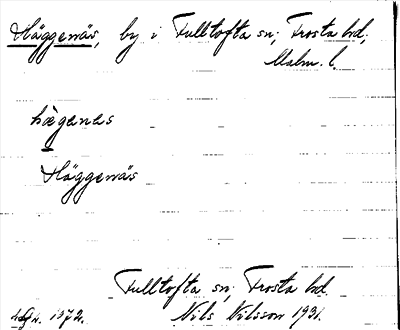 Häggenäs, by i Fulltofta sn; Frosta hd;
Malm. l.
hægenes
Häggenäs
Fulltofta sn; Frosta hd.
1372. Nils Nilsson 1931.